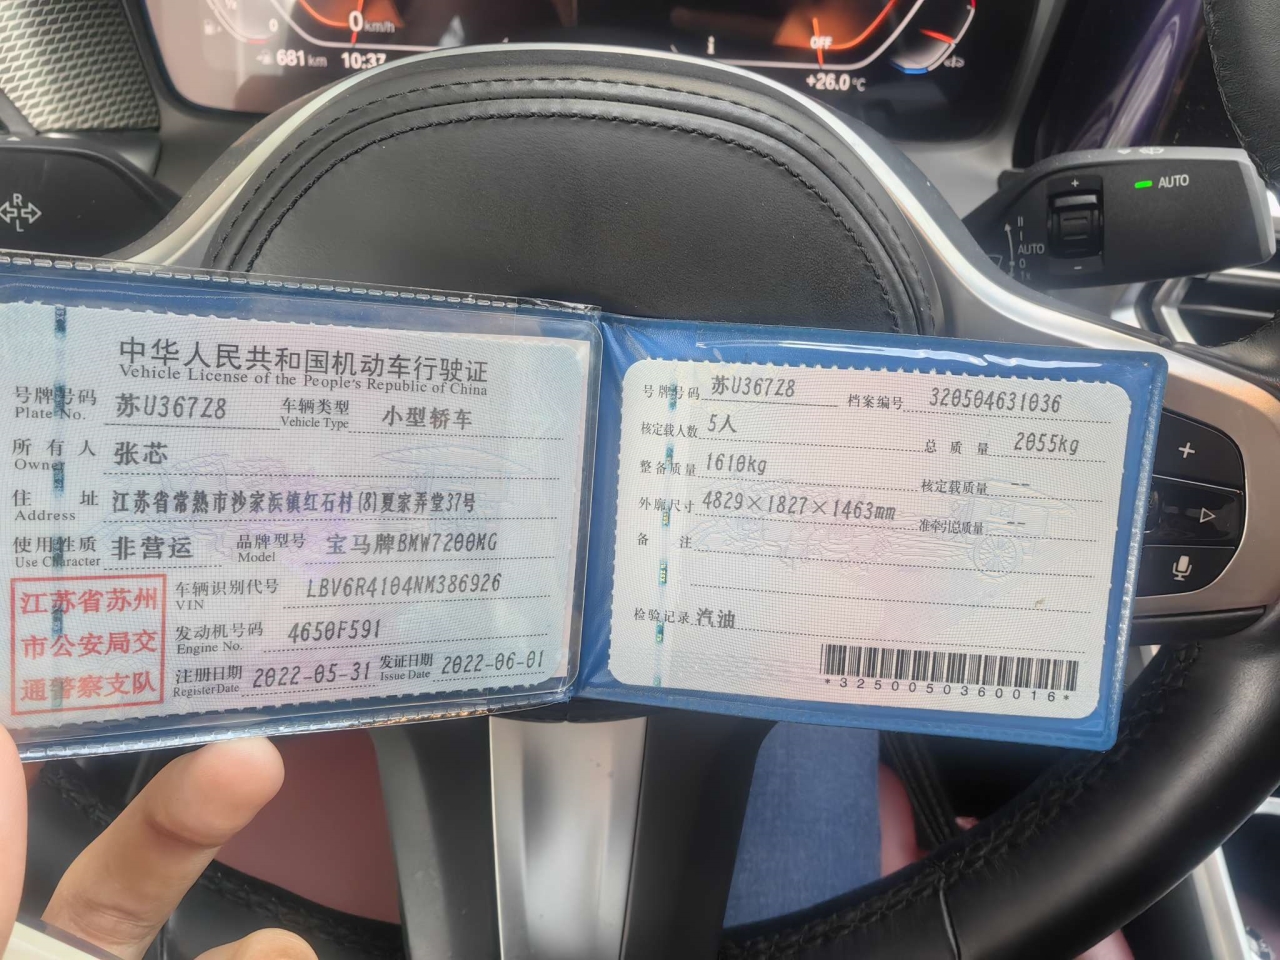 0 km/h
681 km 10:37
OFF
+26.0°C
R
L
AUTO
AUTO
中华人民共和国机动车行驶证
Vehicle License of the People's Republic of China
号牌号码 苏U367Z8 车辆类型 小型轿车
Plate No. Vehicle Type
所有人 张芯
Owner
住址 江苏省常熟市沙家浜镇红石村(8)夏家弄堂37号
Address
使用性质 非营运 品牌型号 宝马牌BMW7200MG
Use Character Model
江苏省苏州
市公安局交
通警察支队
车辆识别代号 LBV6R4104NM386926
VIN
发动机号码 4650F591
Engine No.
注册日期 2022-05-31 发证日期 2022-06-01
Register Date Issue Date
号牌号码 苏U367Z8 档案编号 320504631036
核定载人数 5人 总质量 2055kg
整备质量 1610kg 核定载质量 --
外廓尺寸 4829×1827×1463mm 准牵引总质量 --
备注
检验记录 汽油
*3250050360016*